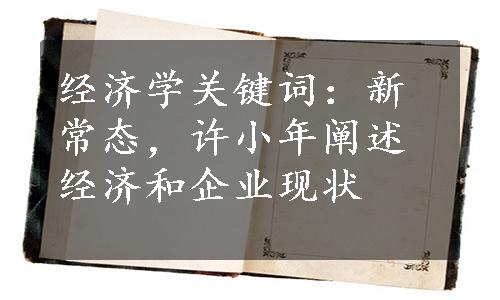 经济学关键词：新
常态，许小年阐述
经济和企业现状